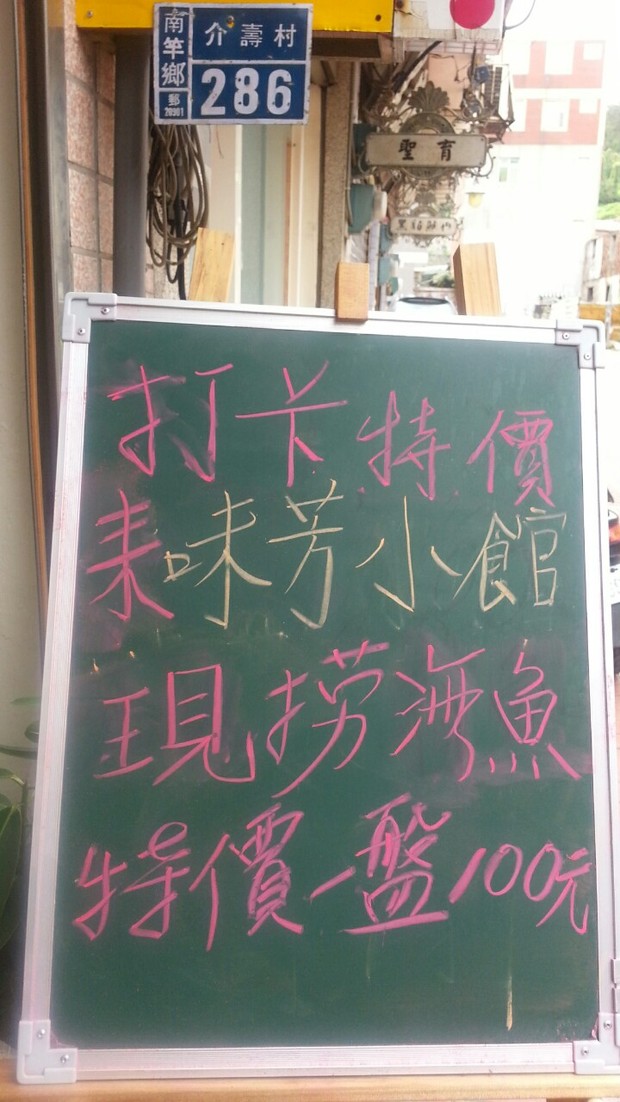 南竿鄉
郵
20901
介壽村
286
聖育
打卡特價
来味芳小館
現捞海魚
特價一盤100元